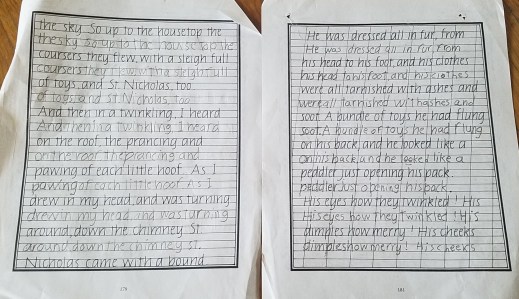 the sky. So up to the housetop the
the sky So up to the housetop the
coursers they flew, with a sleigh full
coursers they flew with a sleigh full
of toys, and St. Nicholas, too.
of toys and St. Nicholas, too
And then in a twinkling, I heard
And then in a twinkling I heard
on the roof, the prancing and
on the roof the prancing and
pawing of each little hoof. As I
pawing of each little hoof As I
drew in my head, and was turning
drew in my head and was turning
around, down the chimney St.
around down the chimney St.
Nicholas came with a bound.
178
He was dressed all in fur, from
He was dressed all in fur, from
his head to his foot, and his clothes
his head to his foot, and his clothes
were all tarnished with ashes and
were all tarnished with ashes and
soot. A bundle of toys he had flung
soot A bundle of toys he had flung
on his back, and he looked like a
on his back, and he looked like a
peddler just opening his pack.
peddler just opening his pack.
His eyes how they twinkled! His
His eyes how they twinkled! His
dimples how merry! His cheeks
dimples how merry! His cheeks
181